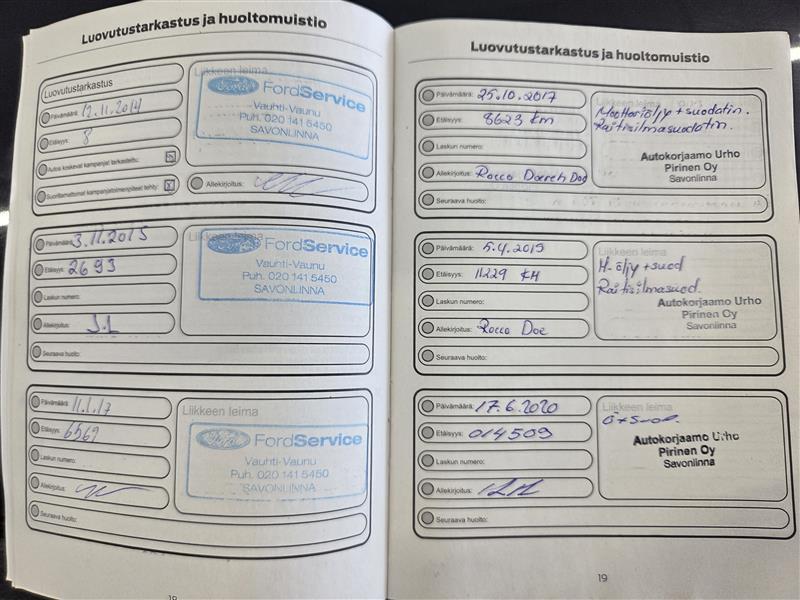 Luovutustarkastus ja huoltomuistio
Luovutustarkastus
Päivämäärä: 12.11.2014
Etäisyys: 8
Autoa koskevat kampanjat tarkastettu:
Suorittamattomat kampanjatoimenpiteet tehty:
Liikkeen leima
Ford FordService
Vauhti-Vaunu
Puh. 020 141 5450
SAVONLINNA
Allekirjoitus:
Päivämäärä: 3.11.2015
Etäisyys: 2693
Laskun numero:
Allekirjoitus: J.L
Seuraava huolto:
Liikkeen leima
Ford FordService
Vauhti-Vaunu
Puh. 020 141 5450
SAVONLINNA
Päivämäärä: 11.1.17
Etäisyys: 6569
Laskun numero:
Allekirjoitus:
Seuraava huolto:
Liikkeen leima
Ford FordService
Vauhti-Vaunu
Puh. 020 141 5450
SAVONLINNA
19
Luovutustarkastus ja huoltomuistio
Päivämäärä: 25.10.2017
Etäisyys: 8623 km
Laskun numero:
Allekirjoitus: Rocco Doe
Seuraava huolto:
Moottoriöljy + suodatin.
Raitisilmasuodatin.
Autokorjaamo Urho
Pirinen Oy
Savonlinna
Päivämäärä: 5.4.2019
Etäisyys: 11229 KM
Laskun numero:
Allekirjoitus: Rocco Doe
Seuraava huolto:
Liikkeen leima
M-öljy + suod
Raitisilmasuod.
Autokorjaamo Urho
Pirinen Oy
Savonlinna
Päivämäärä: 17.6.2020
Etäisyys: 014509
Laskun numero:
Allekirjoitus:
Seuraava huolto:
Liikkeen leima
Ö+Suod.
Autokorjaamo Urho
Pirinen Oy
Savonlinna
19